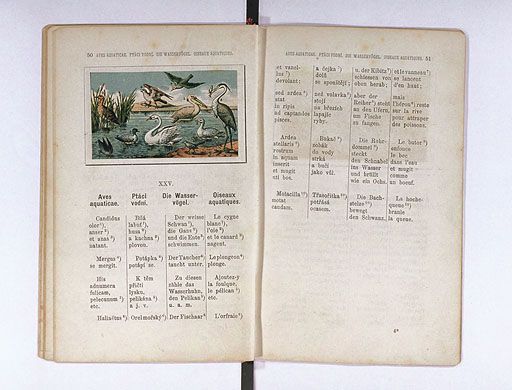 50 AVES AQUATICAE. PTÁCI VODNÍ. DIE WASSERVÖGEL. OISEAUX AQUATIQUES.
XXV.
Aves Ptáci Die Wasser- Oiseaux
aquaticae. vodní. vögel. aquatiques.
Candidus Bílá Der weisse Le cygne
olor¹), labuť¹), Schwan¹), blanc¹),
anser²) husa²) die Gans²) l'oie²)
et anas³) a kachna³) und die Ente³) et le canard³)
natant. plovou. schwimmen. nagent.
Mergus⁴) Potápka⁴) Der Taucher⁴) Le plongeon⁴)
se mergit. potápí se. taucht unter. plonge.
His K těm Zu diesen Ajoutez-y
adnumera přičti zähle das la foulque,
fulicam, lysku, Wasserhuhn, le pélican⁵)
pelecanum⁵) pelikána⁵) den Pelikan⁵) etc.
etc. a j. v. u. a. m.
Haliaëtus⁶) Orel mořský⁶) Der Fischaar⁶) L'orfraie⁶)
AVES AQUATICAE. PTÁCI VODNÍ. DIE WASSERVÖGEL. OISEAUX AQUATIQUES. 51
et vanel- a čejka⁷) u. der Kibitz⁷) et le vanneau⁷)
lus⁷) dolů schiessen von se lancent
devolant; se spouštějí; oben herab; d'en haut;
sed ardea⁸) než volavka⁸) aber der mais
stat stojí Reiher⁸) steht l'héron⁸) reste
in ripis na březích an den Ufern, sur la rive
ad captandos lapajíc um Fische pour attraper
pisces. ryby. zu fangen. des poissons.
Ardea Bukač⁹) Die Rohr- Le butor⁹)
stellaris⁹) zobák dommel⁹) enfonce
rostrum do vody steckt le bec
in aquam strká den Schnabel dans l'eau
inserit a bučí ins Wasser et mugit
et mugit jako vůl. und brüllt comme
uti bos. wie ein Ochs. un boeuf.
Motacilla¹⁰) Třasořitka¹⁰) Die Bach- La hoche-
motat potřásá stelze¹⁰) queue¹⁰)
caudam. ocasem. bewegt branle
den Schwanz. la queue.